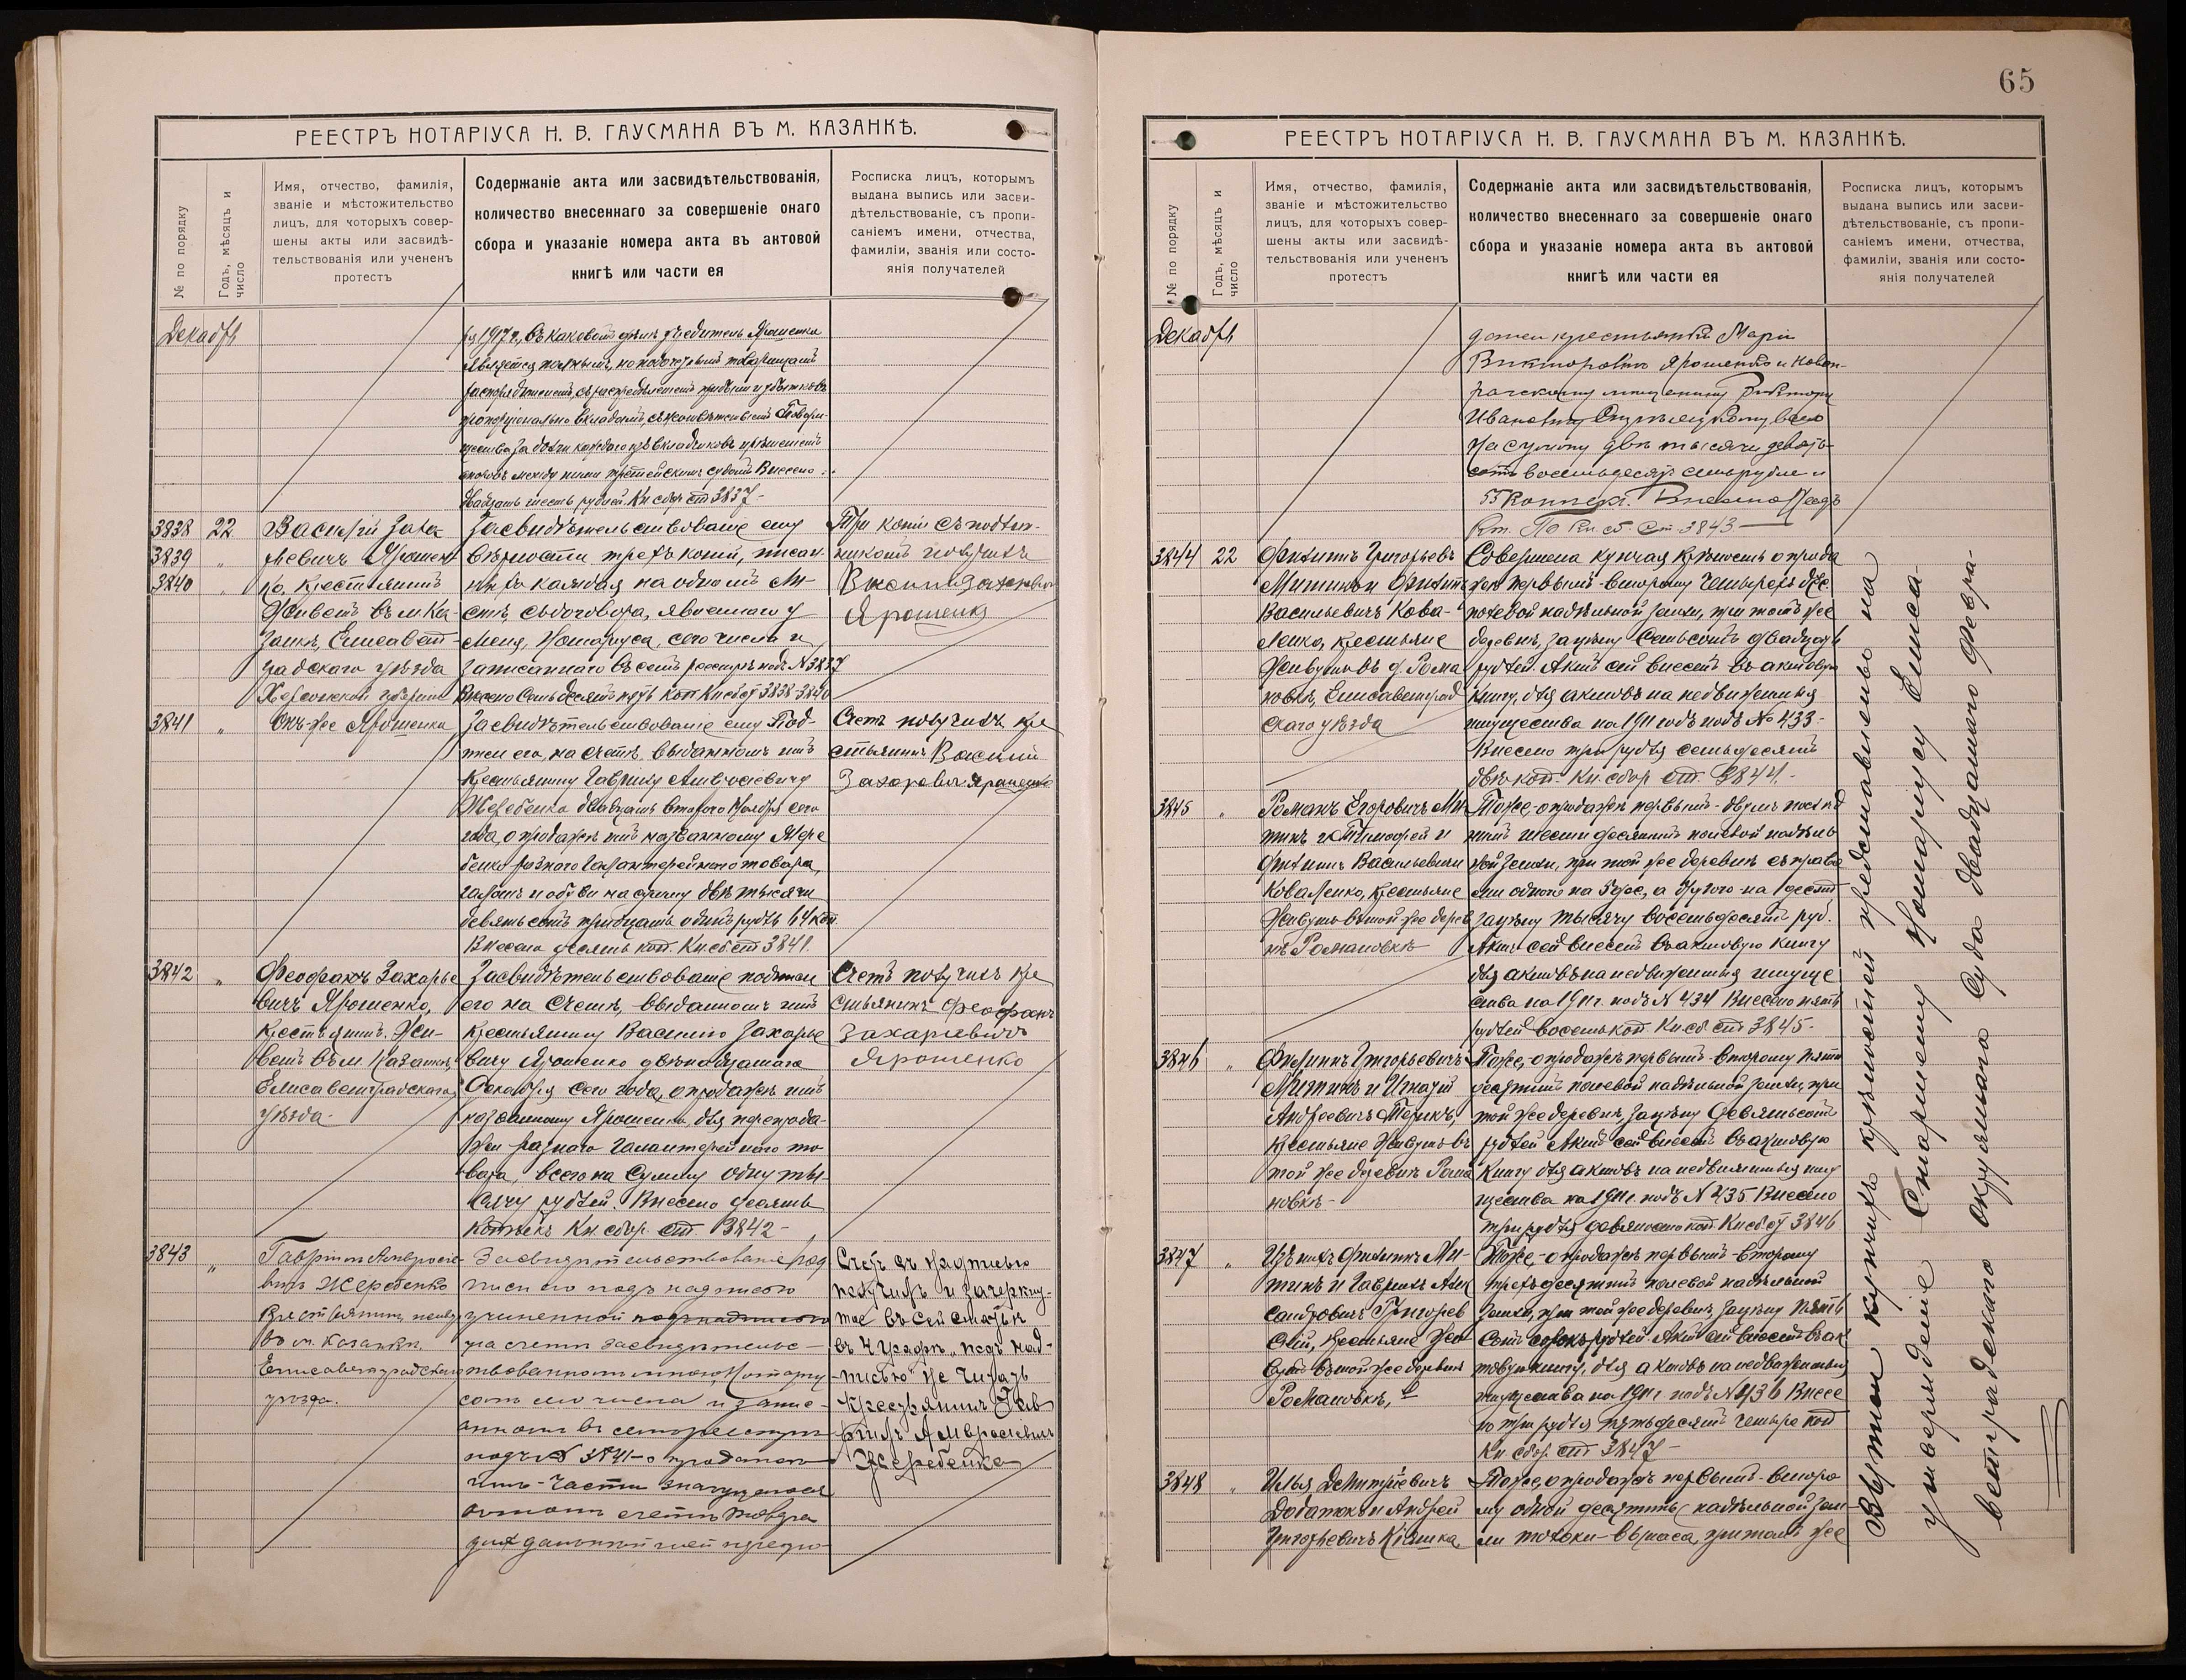 65
РЕЕСТРЪ НОТАРІУСА Н. В. ГАУСМАНА ВЪ М. КАЗАНКѢ.
№ по порядку
Годъ, мѣсяцъ и
число
Имя, отчество, фамилія,
званіе и мѣстожительство
лицъ, для которыхъ совер-
шены акты или засвидѣ-
тельствованія или учененъ
протестъ
Содержаніе акта или засвидѣтельствованія,
количество внесеннаго за совершеніе онаго
сбора и указаніе номера акта въ актовой
книгѣ или части ея
Росписка лицъ, которымъ
выдана выпись или засви-
дѣтельствованіе, съ пропи-
саніемъ имени, отчества,
фамиліи, званія или состо-
янія получателей
Декабрь
1917 г., въ каковой фирмѣ учредитель Ярошенко
является полнымъ,
распредѣленіемъ прибыли и убытковъ
пропорціонально вкладамъ,
между ними третейскимъ судомъ Внесено
двадцать шесть рублей. Кн. сбор. ст. 3837-
3838
3839
3840
22
Василій Захар
ьевичъ Ярошен
ко, крестьянинъ
Живетъ въ м. Ка-
занкѣ, Елисавет-
градскаго уѣзда
Херсонской губерніи
Засвидѣтельствованіе ему
вѣрности трехъ копій, писан-
ныхъ каждая на одномъ ли-
стѣ, съ договора, явленнаго у
меня, Нотаріуса, сего числа и
записаннаго въ семъ реестрѣ подъ № 3837
Внесено семьдесятъ пять коп. Кн. сб. ст. 3838-3840
Три копіи съ подлин-
никомъ получилъ
Василій Захарьев
Ярошенко
3841
Онъ-же Ярошенко
Засвидѣтельствованіе ему под-
писи его, на счетѣ, выданномъ имъ
крестьянину Гавріилу Амвросіевичу
Жеребенко двадцать второго Ноября сего
года, о продажѣ имъ названному Жере
бенко разнаго галантерейнаго товара,
галошъ и обуви на сумму двѣ тысячи
девятьсотъ тридцать одинъ рубль 64 коп.
Внесено десять коп. Кн. сб. ст. 3841.
Счетъ получилъ кре
стьянинъ Василий
Захаревич Ярошенко
3842
Феофанъ Захарье
вичъ Ярошенко,
крестьянинъ. Жи-
ветъ въ м. Казанкѣ,
Елисаветградскаго
уѣзда-
Засвидѣтельствованіе подписи
его на счетѣ, выданномъ имъ
крестьянину Василію Захарье
вичу Ярошенко двѣнадцатаго
Декабря сего года, о продажѣ имъ
названному Ярошенко, для перепрода-
жи разнаго галантерейнаго то
вара, всего на сумму одну ты-
сячу рублей. Внесено десять
копѣекъ Кн. сбор. ст. 3842-
Счетъ получилъ кре
стьянинъ Феофанъ
Захариевичъ
Ярошенко
3843
Гавріилъ Амвросіе-
вичъ Жеребенко
Крестьянинъ,
въ м. Казанкѣ.
Елисаветградскаго
уѣзда.
Засвидѣтельствованіе под
писи его подъ надписью
учиненной подъ надписью
на счетѣ засвидѣтельс-
твованномъ мною, Нотаріу
сомъ сего числа и запис-
анномъ въ семъ реестрѣ
подъ № 3841-о продажѣ
имъ-части значущагося
въ этомъ счетѣ товара
для дальнѣйшей перепро-
Счетъ съ надписью
получилъ и зачеркну-
тое въ сей статьѣ
въ 4 графѣ „подъ над-
писью" не читать
Крестьянинъ Гав
риилъ Амвросіевич
Жеребенко
РЕЕСТРЪ НОТАРІУСА Н. В. ГАУСМАНА ВЪ М. КАЗАНКѢ.
№ по порядку
Годъ, мѣсяцъ и
число
Имя, отчество, фамилія,
званіе и мѣстожительство
лицъ, для которыхъ совер-
шены акты или засвидѣ-
тельствованія или учененъ
протестъ
Содержаніе акта или засвидѣтельствованія,
количество внесеннаго за совершеніе онаго
сбора и указаніе номера акта въ актовой
книгѣ или части ея
Росписка лицъ, которымъ
выдана выпись или засви-
дѣтельствованіе, съ пропи-
саніемъ имени, отчества,
фамиліи, званія или состо-
янія получателей
Декабрь
дажи крестьянкѣ Маріи
Викторовнѣ Ярошенко и
мѣщанину Виктору
Ивановичу всего
на сумму двѣ тысячи девять-
сотъ восемьдесятъ семь рублей и
55 копѣекъ. Внесено десять
коп. По Кн. сб. Ст. 3843
3844
22
Филиппъ Григорьевъ
Митинъ и Филиппъ
Васильевичъ Кова-
ленко, крестьяне
Живущіе въ д. Рома
новкѣ, Елисаветград
скаго уѣзда
Совершена купчая крѣпость о прода
жѣ первымъ-второму четырехъ дес.
полевой надѣльной земли, при той же
деревнѣ, за цѣну семьсотъ двадцать
рублей. Актъ сей внесенъ въ актовую
книгу, для актовъ на недвижимыя
имущества на 1911 годъ подъ № 433-
Внесено три рубля семьдесятъ
двѣ коп. Кн. сбор. ст. 3844.-
3845
Романъ Егоровичъ Ми
тинъ и Тимофей и
Филиппъ Васильевичи
Коваленко, крестьяне
Живущіе въ той-же дерев
нѣ Романовкѣ
Тоже, о продажѣ первымъ-двумъ послѣд
нимъ шести десятинъ полевой надѣль
ной земли, при той же деревнѣ съ права
ми одного на 5 дес., а другого-на 1 десят.
за цѣну тысячу восемьдесятъ руб.
Актъ сей внесенъ въ актовую книгу
для актовъ на недвижимыя имуще
ства на 1911 г. подъ № 434 Внесено пять
рублей восемь коп. Кн. сб. ст. 3845-
3846
Филиппъ Григорьевичъ
Митинъ и Игнатій
Андреевичъ
крестьяне Живущіе въ
той же деревнѣ Рома
новкѣ-
Тоже, о продажѣ первымъ-второму пяти
десятинъ полевой надѣльной земли, при
той же деревнѣ, за цѣну девятьсотъ
рублей Актъ сей внесенъ въ актовую
книгу для актовъ на недвижимыя иму
щества на 1911 г. подъ № 435 Внесено
три рубля девяносто коп. Кн. сб. ст. 3846
3847
Филиппъ Ми-
тинъ и Гавріилъ Алек
сандровичъ Григорьев
крестьяне Жи
вутъ въ той же деревнѣ
Романовкѣ,
Тоже,-о продажѣ первымъ-второму
трехъ десятинъ полевой надѣльной
земли, при той же деревнѣ, за цѣну пять
сотъ сорокъ рублей. Актъ сей внесенъ въ ак
товую книгу, для актовъ на недвижимыя
имущества на 1911 г. подъ № 436 Внесе
но три рубля пятьдесятъ четыре коп
Кн. сбор. ст. 3847-
3848
Илья Дмитріевичъ
Добатюкъ и Андрей
Григорьевичъ
Тоже, о продажѣ первымъ-второ
му одной десятины надѣльной зем
ли при томъ же
Выписи купчихъ крѣпостей представлены на
утвержденіе Старшему Нотаріусу Елиса-
ветградскаго Окружнаго Суда двадцатаго Февра-